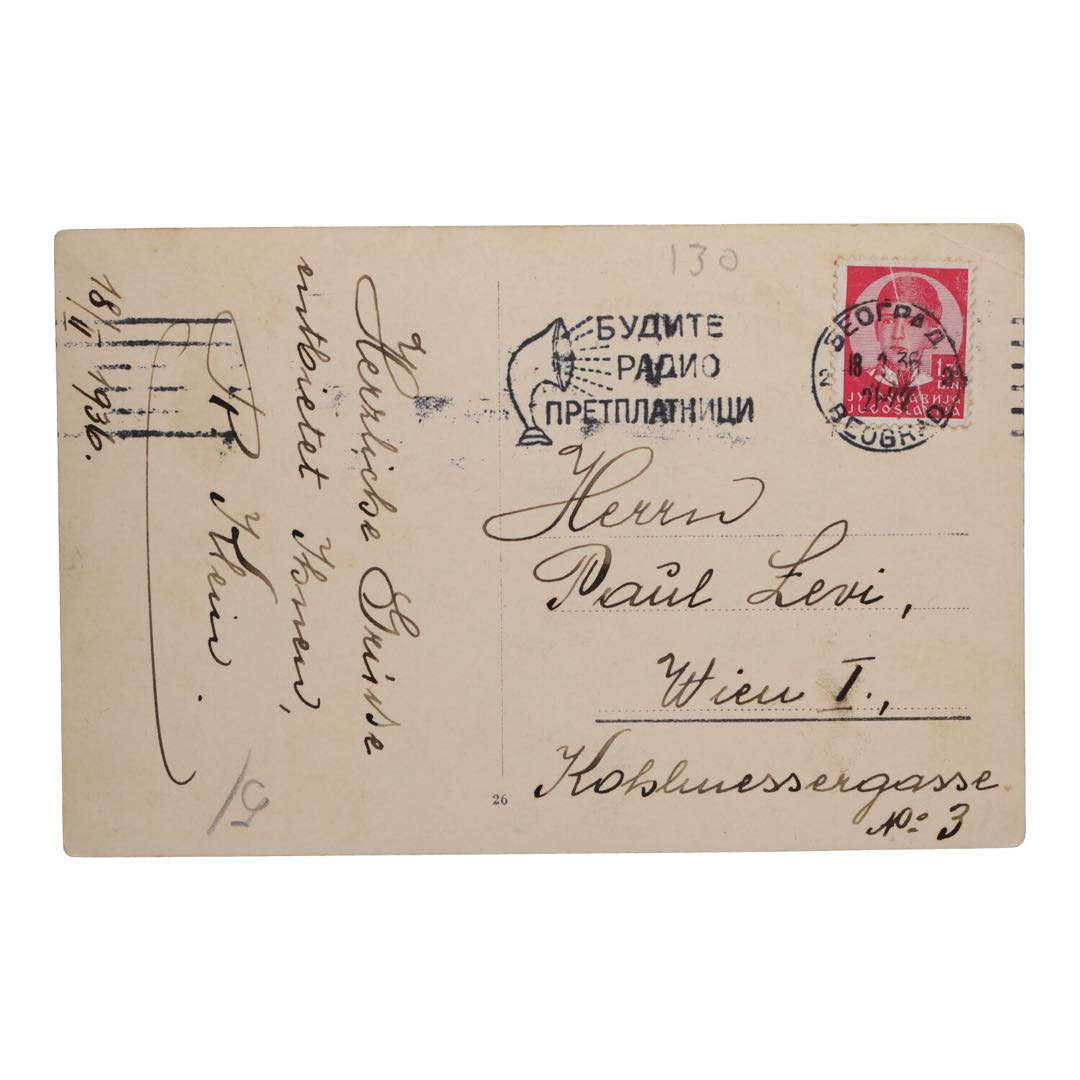 130
БУДИТЕ
РАДИО
ПРЕТПЛАТНИЦИ
БЕОГРАД
18 2 36
2
BEOGRAD
1
ЈУГОСЛАВИЈА
JUGOSLAVIJA
18/II 1936.
Herzliche Grüsse
entbietet Ihnen,
Klein.
Herrn
Paul Levi,
Wien I.,
Kohlmessergasse
No: 3
26
51